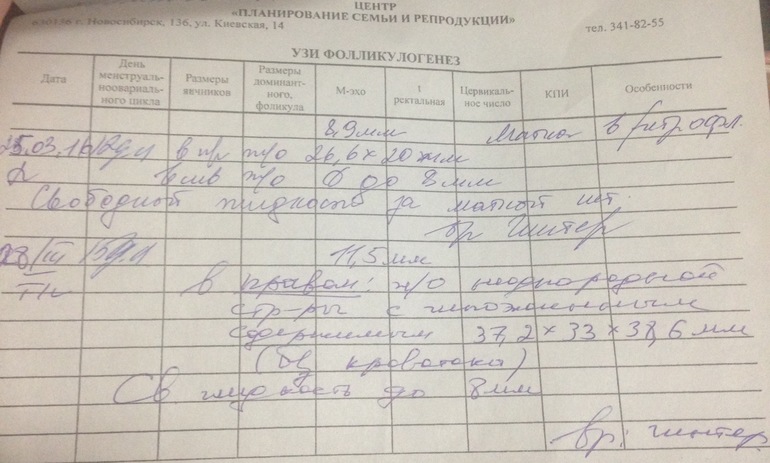 ЦЕНТР
«ПЛАНИРОВАНИЕ СЕМЬИ И РЕПРОДУКЦИИ»
630136 г. Новосибирск, 136, ул. Киевская, 14 тел. 341-82-55
УЗИ ФОЛЛИКУЛОГЕНЕЗ
Дата День менструаль-ноовариаль-ного цикла Размеры яичников Размеры доминант-ного, фоликула М-эхо t ректальная Цервикаль-ное число КПИ Особенности
8,9мм Матка в
25.03.16 в пр п/о 26,6 × 20 мм
в лев п/о до 8 мм
Свободной жидкости за маткой нет.
Вр Гинтер
28/III 11,5 мм
Пн в правом: п/о неоднородной
стр-ры с гипоэхогенным
содержимым 37,2 × 33 × 38,6 мм
(без кровотока)
Св жидкость до 8мм
вр: Гинтер